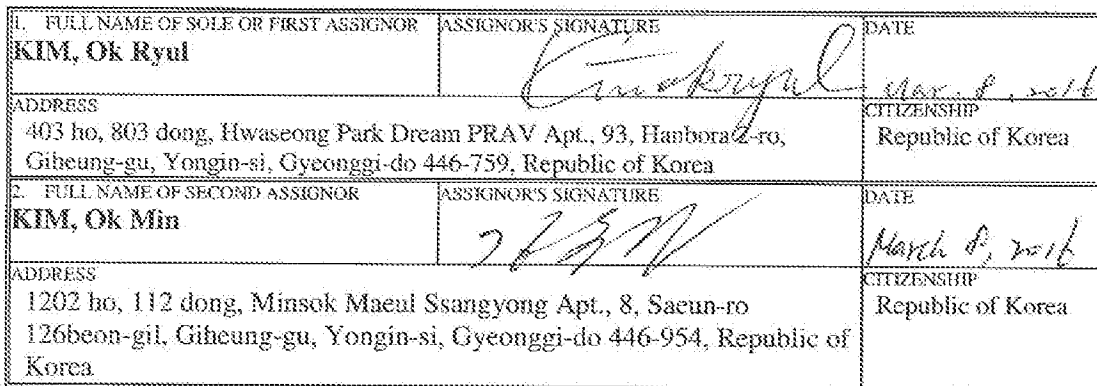 1. FULL NAME OF SOLE OR FIRST ASSIGNOR
KIM, Ok Ryul
ASSIGNOR'S SIGNATURE
Kimokryul
DATE
Mar. 8, 2016
ADDRESS
403 ho, 803 dong, Hwaseong Park Dream PRAV Apt., 93, Hanbora 2-ro,
Giheung-gu, Yongin-si, Gyeonggi-do 446-759, Republic of Korea
CITIZENSHIP
Republic of Korea
2. FULL NAME OF SECOND ASSIGNOR
KIM, Ok Min
ASSIGNOR'S SIGNATURE
DATE
March 8, 2016
ADDRESS
1202 ho, 112 dong, Minsok Maeul Ssangyong Apt., 8, Saeun-ro
126beon-gil, Giheung-gu, Yongin-si, Gyeonggi-do 446-954, Republic of
Korea
CITIZENSHIP
Republic of Korea